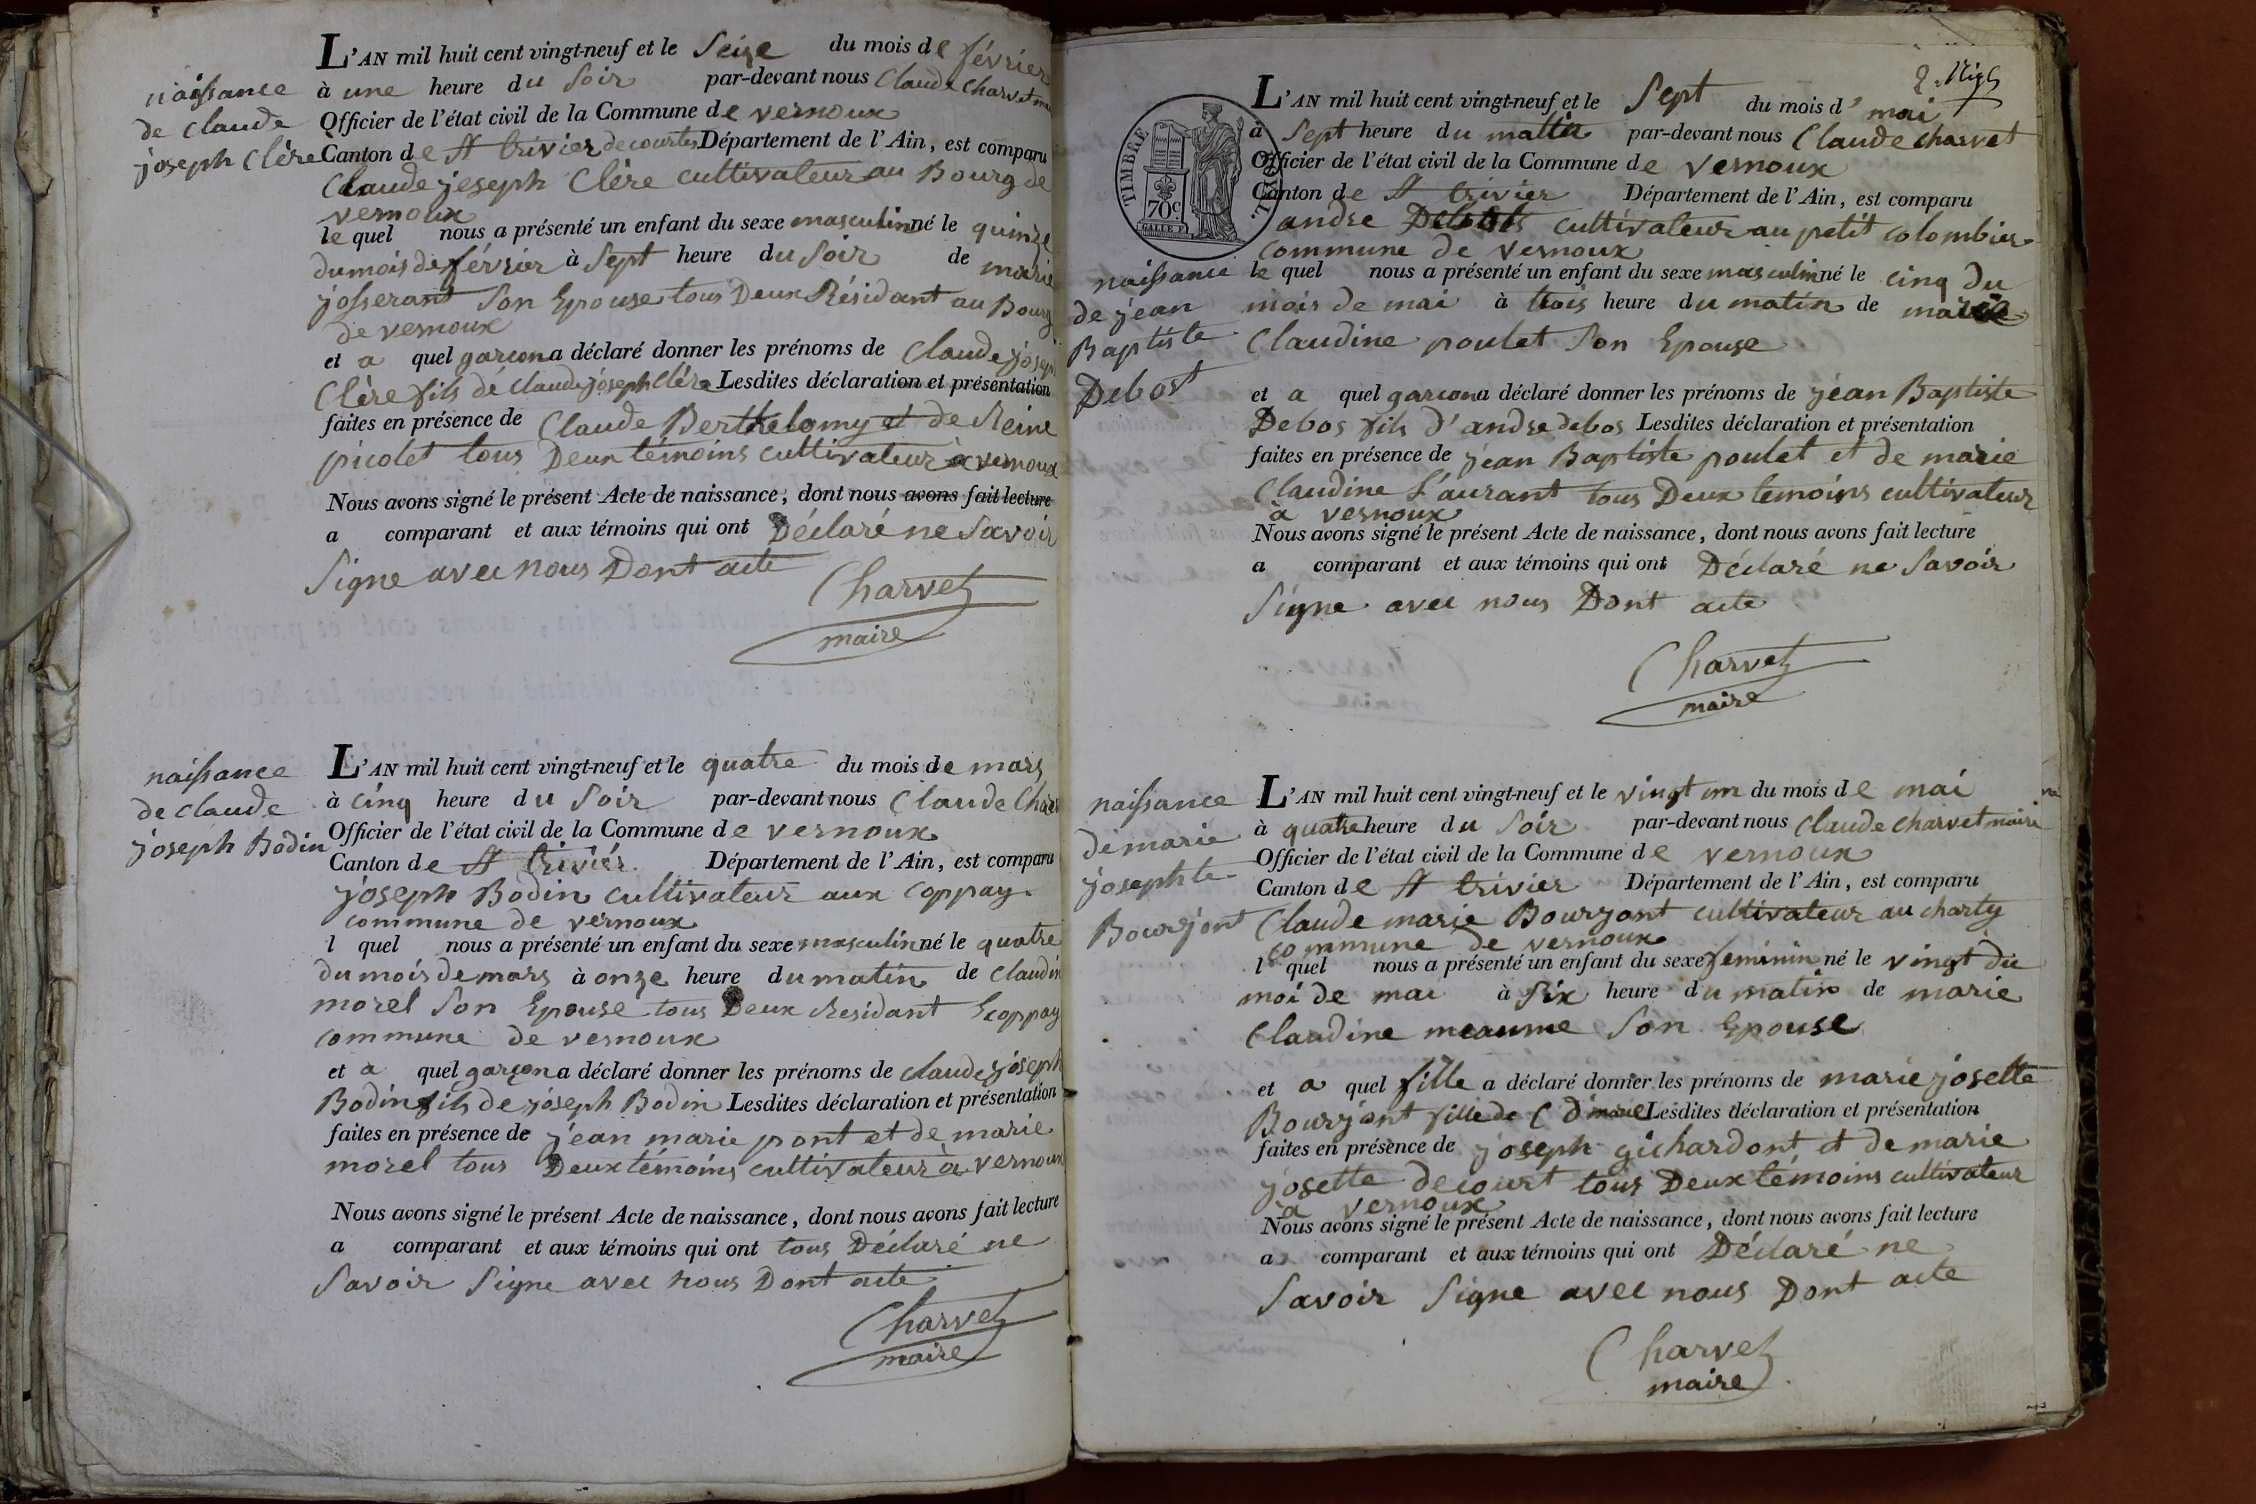 naissance
de claude
joseph Clère
L'AN mil huit cent vingt-neuf et le Seize du mois de février
à une heure du Soir par-devant nous Claude Charvet
Officier de l'état civil de la Commune de vernoux
Canton de St trivier de courtes Département de l'Ain, est comparu
Claude jeseph Clère cultivateur au Bourg de
vernoux
le quel nous a présenté un enfant du sexe masculin né le quinze
du mois de février à Sept heure du Soir de marie
josserant Son Epouse tous Deux Résidant au Bourg
de vernoux
et a quel garcon a déclaré donner les prénoms de Claude joseph
Clère fils de Claude joseph Clère Lesdites déclaration et présentation
faites en présence de Claude Berthelomy et de Reine
picolet tous Deux témoins cultivateur à vernoux
Nous avons signé le présent Acte de naissance, dont nous avons fait lecture
a comparant et aux témoins qui ont Déclaré ne Savoir
Signe avec nous Dont acte
Charvet
maire
naissance
de claude
joseph Bodin
L'AN mil huit cent vingt-neuf et le quatre du mois de mars
à cinq heure du Soir par-devant nous Claude
Officier de l'état civil de la Commune de vernoux
Canton de St trivier Département de l'Ain, est comparu
joseph Bodin cultivateur aux coppay
commune de vernoux
l quel nous a présenté un enfant du sexe masculin né le quatre
du mois de mars à onze heure du matin de Claudin
morel Son Epouse tous Deux Residant coppay
commune de vernoux
et a quel garçon a déclaré donner les prénoms de claude joseph
Bodin fils de joseph Bodin Lesdites déclaration et présentation
faites en présence de jean marie pont et de marie
morel tous Deux témoins cultivateur à vernoux
Nous avons signé le présent Acte de naissance, dont nous avons fait lecture
a comparant et aux témoins qui ont tous Déclaré ne
Savoir Signe avec nous Dont acte
Charvet
maire
TIMBRE ROYAL.
70c
naissance
de jean
Baptiste
Debost
L'AN mil huit cent vingt-neuf et le Sept du mois d' mai
à Sept heure du mattin par-devant nous Claude charvet
Officier de l'état civil de la Commune de vernoux
Canton de St trivier Département de l'Ain, est comparu
andre cultivateur au petit colombier
commune de vernoux
le quel nous a présenté un enfant du sexe masculin né le cinq du
mois de mai à trois heure du matin de marie
Claudine poulet Son Epouse
et a quel garcon a déclaré donner les prénoms de jean Baptiste
Debos fils d'andre debos Lesdites déclaration et présentation
faites en présence de jean Baptiste poulet et de marie
Claudine Laurant tous Deux temoins cultivateur
à vernoux
Nous avons signé le présent Acte de naissance, dont nous avons fait lecture
a comparant et aux témoins qui ont Déclaré ne Savoir
Signe avec nous Dont acte
Charvet
maire
naissance
de marie
josephte
Bourjont
L'AN mil huit cent vingt-neuf et le vingt un du mois de mai
à quatre heure du Soir par-devant nous Claude charvet maire
Officier de l'état civil de la Commune de vernoux
Canton de St trivier Département de l'Ain, est comparu
Claude marie Bourjont cultivateur au charty
commune de vernoux
l quel nous a présenté un enfant du sexe feminin né le vingt du
moi de mai à Six heure du matin de marie
Claudine meaume Son Epouse
et a quel fille a déclaré donner les prénoms de marie josette
Bourjont fille de C d marie Lesdites déclaration et présentation
faites en présence de joseph gichardont et de marie
josette decourt tous Deux témoins cultivateur
à vernoux
Nous avons signé le présent Acte de naissance, dont nous avons fait lecture
a comparant et aux témoins qui ont Déclaré ne
Savoir Signe avec nous Dont acte
Charvet
maire